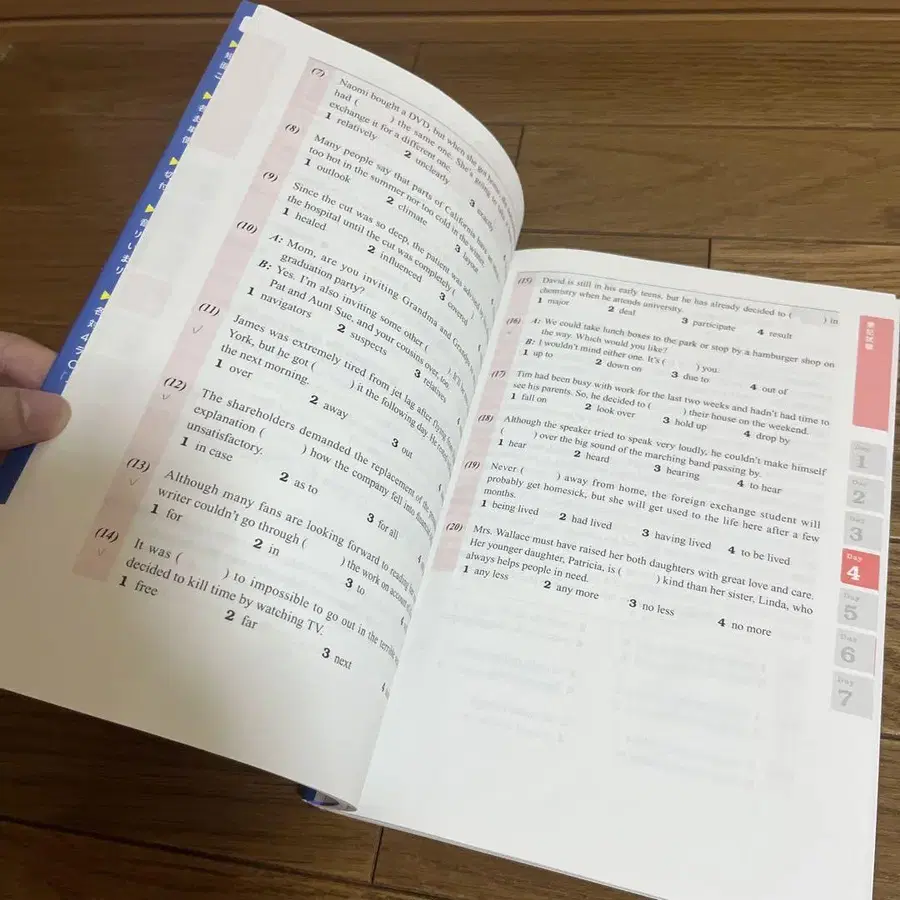 (7) Naomi bought a DVD, but when she got home, she
had ( ) the same one. She's going to
exchange it for a different one.
1 relatively 2 unclearly 3 exactly
(8) Many people say that parts of California have an
too hot in the summer nor too cold in the winter.
1 outlook 2 climate 3 layout
(9) Since the cut was so deep, the patient was advised
the hospital until the cut was completely (
1 healed 2 influenced 3 covered
(10) A: Mom, are you inviting Grandma and Grandpa
graduation party?
B: Yes. I'm also inviting some other (
Pat and Aunt Sue, and your cousins over, too.
1 navigators 2 suspects 3 relatives
(11) James was extremely tired from jet lag after flying from
York, but he got ( ) it the following day. He
the next morning.
1 over 2 away 3 out
(12) The shareholders demanded the replacement of the
explanation ( ) how the company fell into financial
unsatisfactory.
1 in case 2 as to 3 for all
(13) Although many fans are looking forward to reading
writer couldn't go through ( ) the work on account of
1 for 2 in 3 to
(14) It was ( ) to impossible to go out in the terrible
decided to kill time by watching TV.
1 free 2 far 3 next
(15) David is still in his early teens, but he has already decided to ( ) in
chemistry when he attends university.
1 major 2 deal 3 participate 4 result
(16) A: We could take lunch boxes to the park or stop by a hamburger shop on
the way. Which would you like?
B: I wouldn't mind either one. It's ( ) you.
1 up to 2 down on 3 due to 4 out of
(17) Tim had been busy with work for the last two weeks and hadn't had time to
see his parents. So, he decided to ( ) their house on the weekend.
1 fall on 2 look over 3 hold up 4 drop by
(18) Although the speaker tried to speak very loudly, he couldn't make himself
( ) over the big sound of the marching band passing by.
1 hear 2 heard 3 hearing 4 to hear
(19) Never ( ) away from home, the foreign exchange student will
probably get homesick, but she will get used to the life here after a few
months.
1 being lived 2 had lived 3 having lived 4 to be lived
(20) Mrs. Wallace must have raised her both daughters with great love and care.
Her younger daughter, Patricia, is ( ) kind than her sister, Linda, who
always helps people in need.
1 any less 2 any more 3 no less 4 no more
筆記試験
Day 1
Day 2
Day 3
Day 4
Day 5
Day 6
Day 7